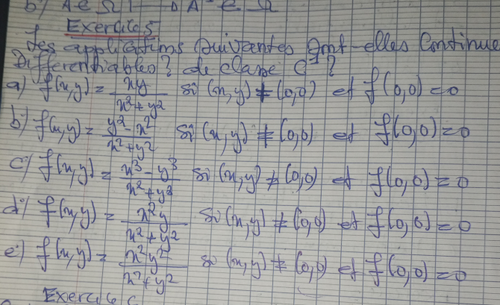 b) A ∈ Ω
Exercice 5
Les applications suivantes sont-elles continue
Différentiables? de classe C¹?
a) f(x,y) = xy/(x²+y²) si (x,y) ≠ (0,0) et f(0,0)=0
b) f(x,y) = (y²-x²)/(x²+y²) si (x,y) ≠ (0,0) et f(0,0)=0
c) f(x,y) = (x³-y³)/(x²+y²) si (x,y) ≠ (0,0) et f(0,0)=0
d) f(x,y) = x²y/(x²+y²) si (x,y) ≠ (0,0) et f(0,0)=0
e) f(x,y) = x²y²/(x²+y²) si (x,y) ≠ (0,0) et f(0,0)=0
Exercice 6